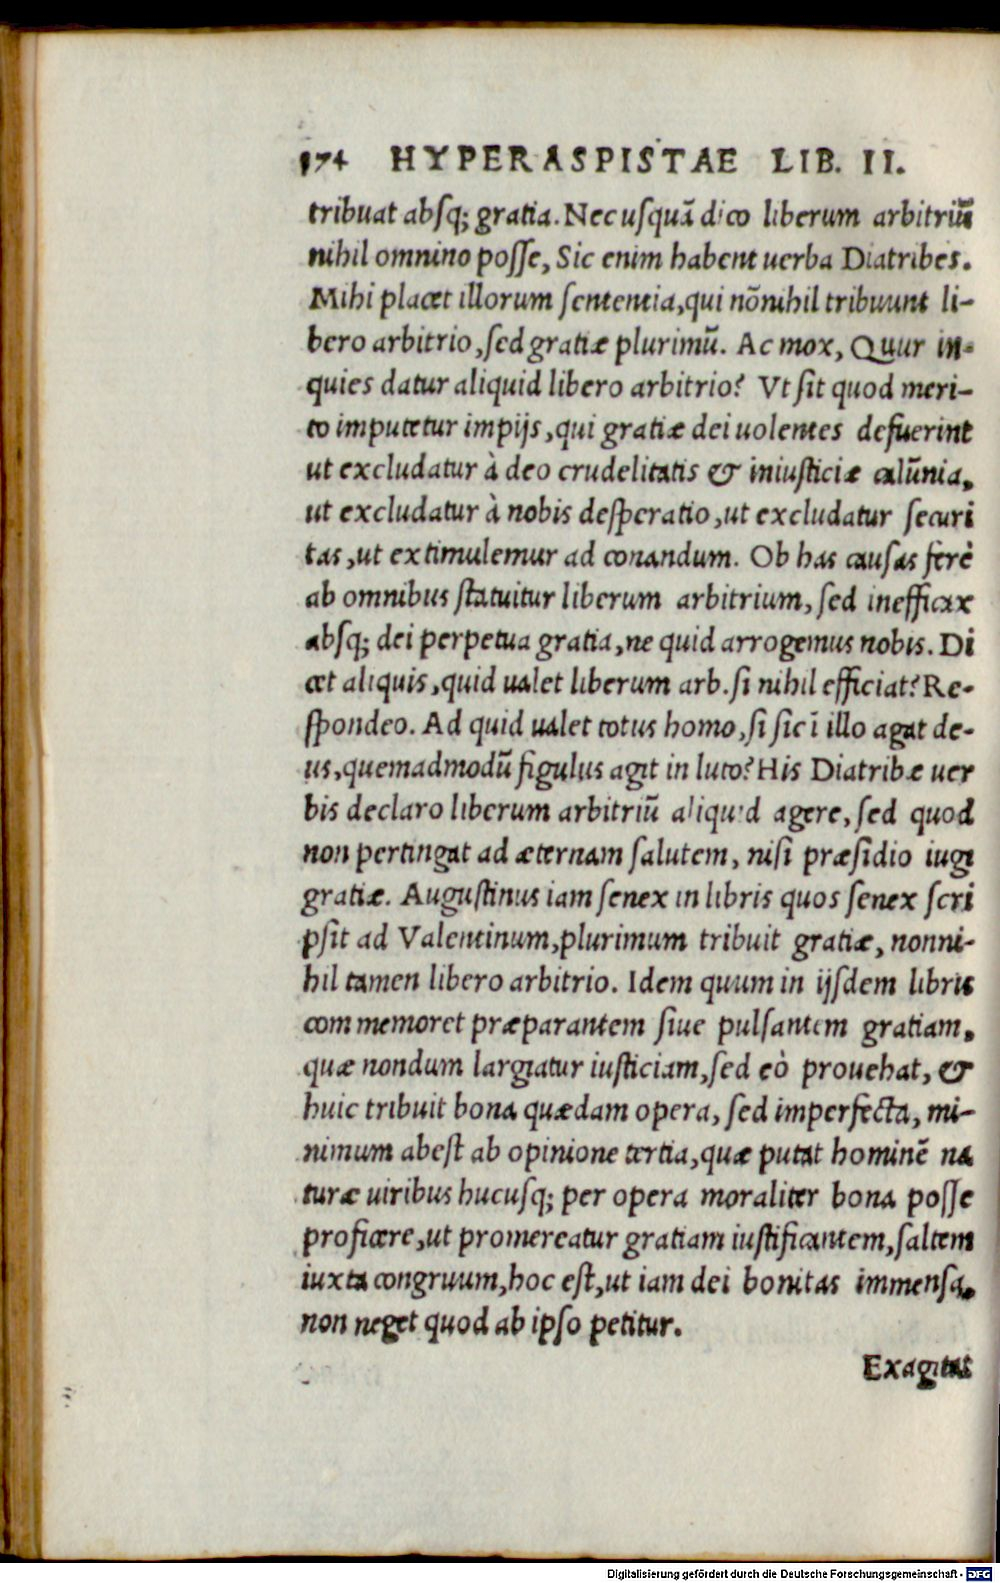 174 HYPERASPISTAE LIB. II.
tribuat absq; gratia. Nec usquā dico liberum arbitriū
nihil omnino posse, Sic enim habent uerba Diatribes.
Mihi placet illorum sententia, qui nōnihil tribuunt li-
bero arbitrio, sed gratiæ plurimū. Ac mox, Quur in-
quies datur aliquid libero arbitrio? Vt sit quod meri-
to imputetur impijs, qui gratiæ dei uolentes defuerint
ut excludatur à deo crudelitatis & iniusticiæ calūnia,
ut excludatur à nobis desperatio, ut excludatur securi
tas, ut extimulemur ad conandum. Ob has causas ferè
ab omnibus statuitur liberum arbitrium, sed inefficax
absq; dei perpetua gratia, ne quid arrogemus nobis. Di
cet aliquis, quid ualet liberum arb. si nihil efficiat? Re-
spondeo. Ad quid ualet totus homo, si sic ī illo agat de-
us, quemadmodū figulus agit in luto? His Diatribæ uer
bis declaro liberum arbitriū aliquid agere, sed quod
non pertingat ad æternam salutem, nisi præsidio iugi
gratiæ. Augustinus iam senex in libris quos senex scri
psit ad Valentinum, plurimum tribuit gratiæ, nonni-
hil tamen libero arbitrio. Idem quum in ijsdem libris
commemoret præparantem siue pulsantem gratiam,
quæ nondum largiatur iusticiam, sed eò prouehat, &
huic tribuit bona quædam opera, sed imperfecta, mi-
nimum abest ab opinione tertia, quæ putat hominē na
turæ uiribus hucusq; per opera moraliter bona posse
proficere, ut promereatur gratiam iustificantem, saltem
iuxta congruum, hoc est, ut iam dei bonitas immensa,
non neget quod ab ipso petitur.
Exagitat
Digitalisierung gefördert durch die Deutsche Forschungsgemeinschaft - DFG